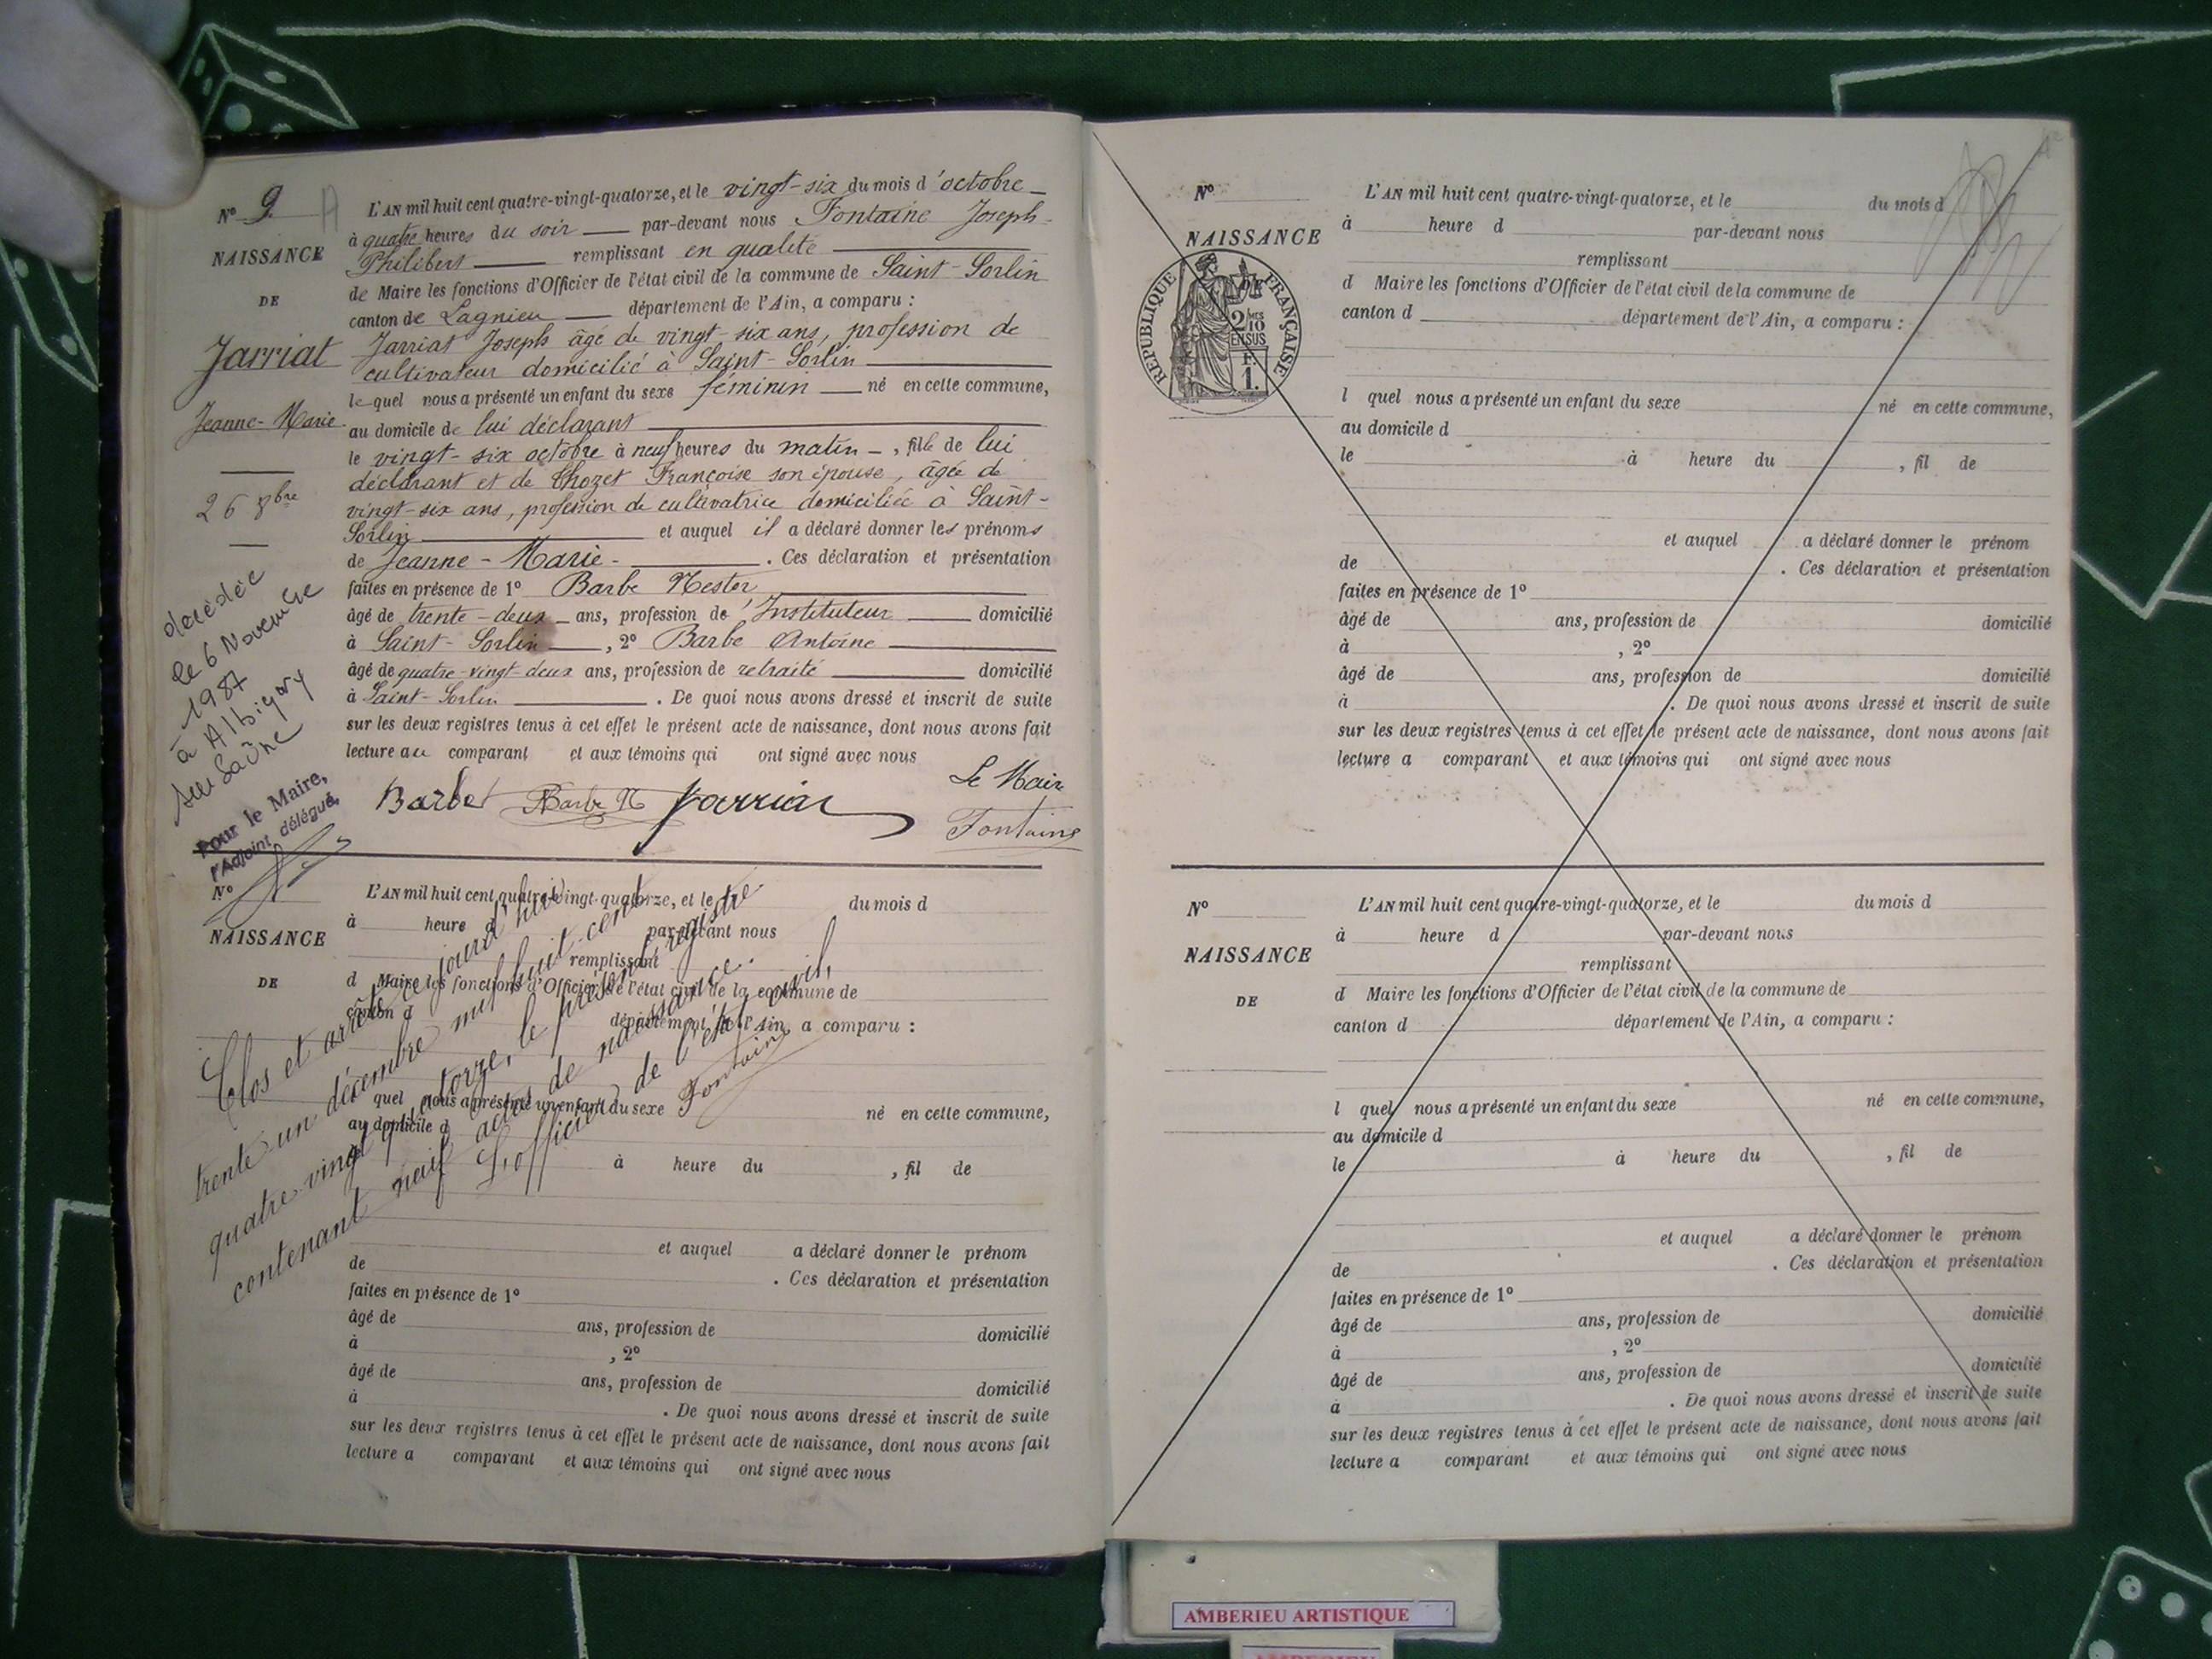 Nº 9.
NAISSANCE
DE
Jarriat
Jeanne-Marie
26 8bre
décédée
le 6 Novembre
1987
à Albigny
sur Saône
Pour le Maire,
l'Adjoint délégué,
L'AN mil huit cent quatre-vingt-quatorze, et le vingt-six du mois d'octobre
à quatre heures du soir par-devant nous Fontaine Joseph-
Philibert remplissant en qualité
de Maire les fonctions d'Officier de l'état civil de la commune de Saint-Sorlin
canton de Lagnieu département de l'Ain, a comparu :
Jarriat Joseph âgé de vingt-six ans, profession de
cultivateur domicilié à Saint-Sorlin
lequel nous a présenté un enfant du sexe féminin né en cette commune,
au domicile de lui déclarant
le vingt-six octobre à neuf heures du matin, fille de lui
déclarant et de Thozet Françoise son épouse, âgée de
vingt-six ans, profession de cultivatrice domiciliée à Saint-
Sorlin et auquel il a déclaré donner les prénoms
de Jeanne-Marie-. Ces déclaration et présentation
faites en présence de 1º Barbe Nestor
âgé de trente-deux ans, profession de Instituteur domicilié
à Saint-Sorlin, 2º Barbe Antoine
âgé de quatre-vingt-deux ans, profession de retraité domicilié
à Saint-Sorlin. De quoi nous avons dressé et inscrit de suite
sur les deux registres tenus à cet effet le présent acte de naissance, dont nous avons fait
lecture au comparant et aux témoins qui ont signé avec nous
Le Maire
Barbe Barbe N Jarriat Fontaine
Nº
NAISSANCE
DE
L'AN mil huit cent quatre-vingt-quatorze, et le du mois d
à heure d par-devant nous
remplissant
d Maire les fonctions d'Officier de l'état civil de la commune de
canton d département de l'Ain, a comparu :
quel nous a présenté un enfant du sexe né en cette commune,
au domicile d
à heure du , fil de
et auquel a déclaré donner le prénom
de . Ces déclaration et présentation
faites en présence de 1º
âgé de ans, profession de domicilié
à , 2º
âgé de ans, profession de domicilié
à . De quoi nous avons dressé et inscrit de suite
sur les deux registres tenus à cet effet le présent acte de naissance, dont nous avons fait
lecture a comparant et aux témoins qui ont signé avec nous
Clos et arrêté ce jourd'hui
trente un décembre mil huit cent
quatre vingt quatorze, le présent registre
contenant neuf actes de naissance.
L'officier de l'état civil,
Fontaine
Nº
NAISSANCE
DE
RÉPUBLIQUE FRANÇAISE
2/10 EN SUS
F.
1.
L'AN mil huit cent quatre-vingt-quatorze, et le du mois d
à heure d par-devant nous
remplissant
d Maire les fonctions d'Officier de l'état civil de la commune de
canton d département de l'Ain, a comparu :
l quel nous a présenté un enfant du sexe né en cette commune,
au domicile d
le à heure du , fil de
et auquel a déclaré donner le prénom
de . Ces déclaration et présentation
faites en présence de 1º
âgé de ans, profession de domicilié
à , 2º
âgé de ans, profession de domicilié
à . De quoi nous avons dressé et inscrit de suite
sur les deux registres tenus à cet effet le présent acte de naissance, dont nous avons fait
lecture a comparant et aux témoins qui ont signé avec nous
Nº
NAISSANCE
DE
L'AN mil huit cent quatre-vingt-quatorze, et le du mois d
à heure d par-devant nous
remplissant
d Maire les fonctions d'Officier de l'état civil de la commune de
canton d département de l'Ain, a comparu :
l quel nous a présenté un enfant du sexe né en cette commune,
au domicile d
le à heure du , fil de
et auquel a déclaré donner le prénom
de . Ces déclaration et présentation
faites en présence de 1º
âgé de ans, profession de domicilié
à , 2º
âgé de ans, profession de domicilié
à . De quoi nous avons dressé et inscrit de suite
sur les deux registres tenus à cet effet le présent acte de naissance, dont nous avons fait
lecture a comparant et aux témoins qui ont signé avec nous
AMBERIEU ARTISTIQUE
AMBERIEU